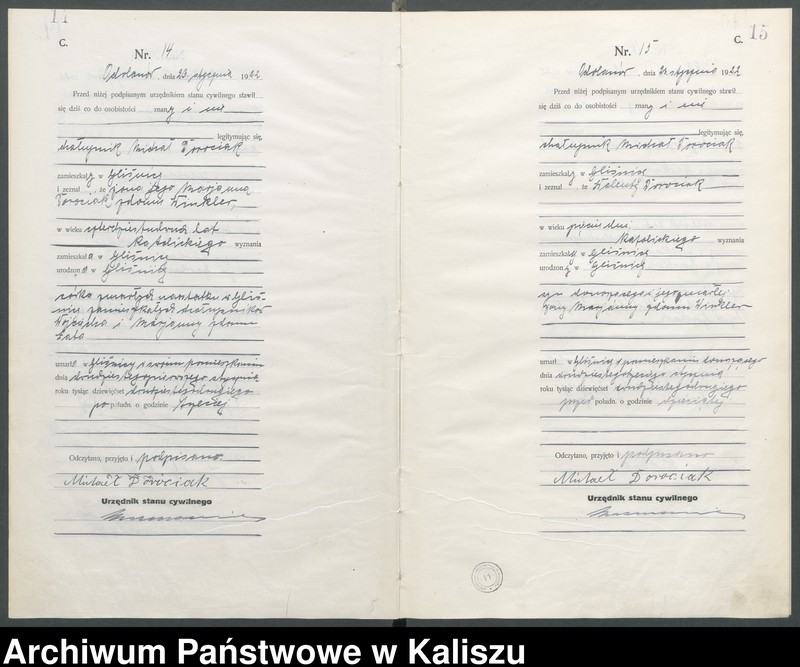 C.
Nr. 14
Odolanów, dnia 23. stycznia 1922
Przed niżej podpisanym urzędnikiem stanu cywilnego stawił
się dziś co do osobistości many i
legitymując się,
chałupnik Michał Dorociak
zamieszkały w Gliśnicy
i zeznał, że żona jego Marjanna
Dorociak zdomu Winkler,
w wieku lat
katolickiego wyznania
zamieszkała w Gliśnicy
urodzona w Gliśnicy
córka zmarłych w Gliś-
nicy zamieszkałych chałupników
Wojciecha i Marjanny zdomu
umarła w Gliśnicy w swoim pomieszkaniu
dnia dwudziestego stycznia
roku tysiąc dziewięćset dwudziestego drugiego
po połudn. o godzinie trzeciej
Odczytano, przyjęto i podpisano
Michael Dorociak
Urzędnik stanu cywilnego
15
C.
Nr. 15
Odolanów, dnia stycznia 1922
Przed niżej podpisanym urzędnikiem stanu cywilnego stawił
się dziś co do osobistości many i
legitymując się,
chałupnik Michał Dorociak
zamieszkały w Gliśnicy
i zeznał, że Dorociak
w wieku pięciu dni
katolickiego wyznania
zamieszkały w Gliśnicy
urodzony w Gliśnicy
syn donoszącego i jego zmarłej
żony Marjanny zdomu Winkler
umarł w Gliśnicy w pomieszkaniu donoszącego
dnia dwudziestego stycznia
roku tysiąc dziewięćset dwudziestego drugiego
przed połudn. o godzinie
Odczytano, przyjęto i podpisano
Michael Dorociak
Urzędnik stanu cywilnego
Archiwum Państwowe w Kaliszu